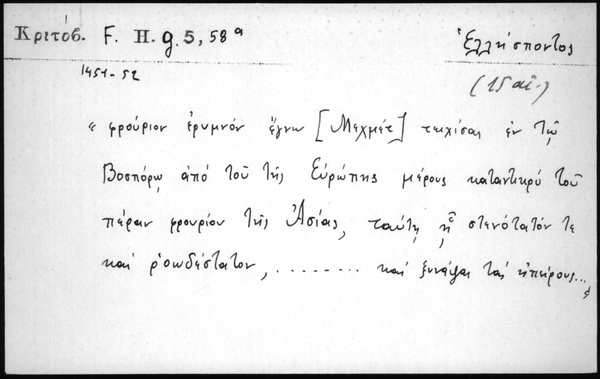 Κριτόβ. F. H. g. 5, 58ᵃ
Ἑλλήσποντος
1451-52
(15 αἰ.)
" φρούριον ἐρυμνὸν ἔγνω [Μεχμέτ] τειχίσαι ἐν τῷ
Βοσπόρῳ ἀπὸ τοῦ τῆς Εὐρώπης μέρους καταντικρύ τοῦ
πέραν φρουρίου τῆς Ἀσίας, ταύτῃ ᾗ στενότατόν τε
καὶ ῥοωδέστατον, ........ καὶ ξυνάψαι τὰς ἠπείρους...